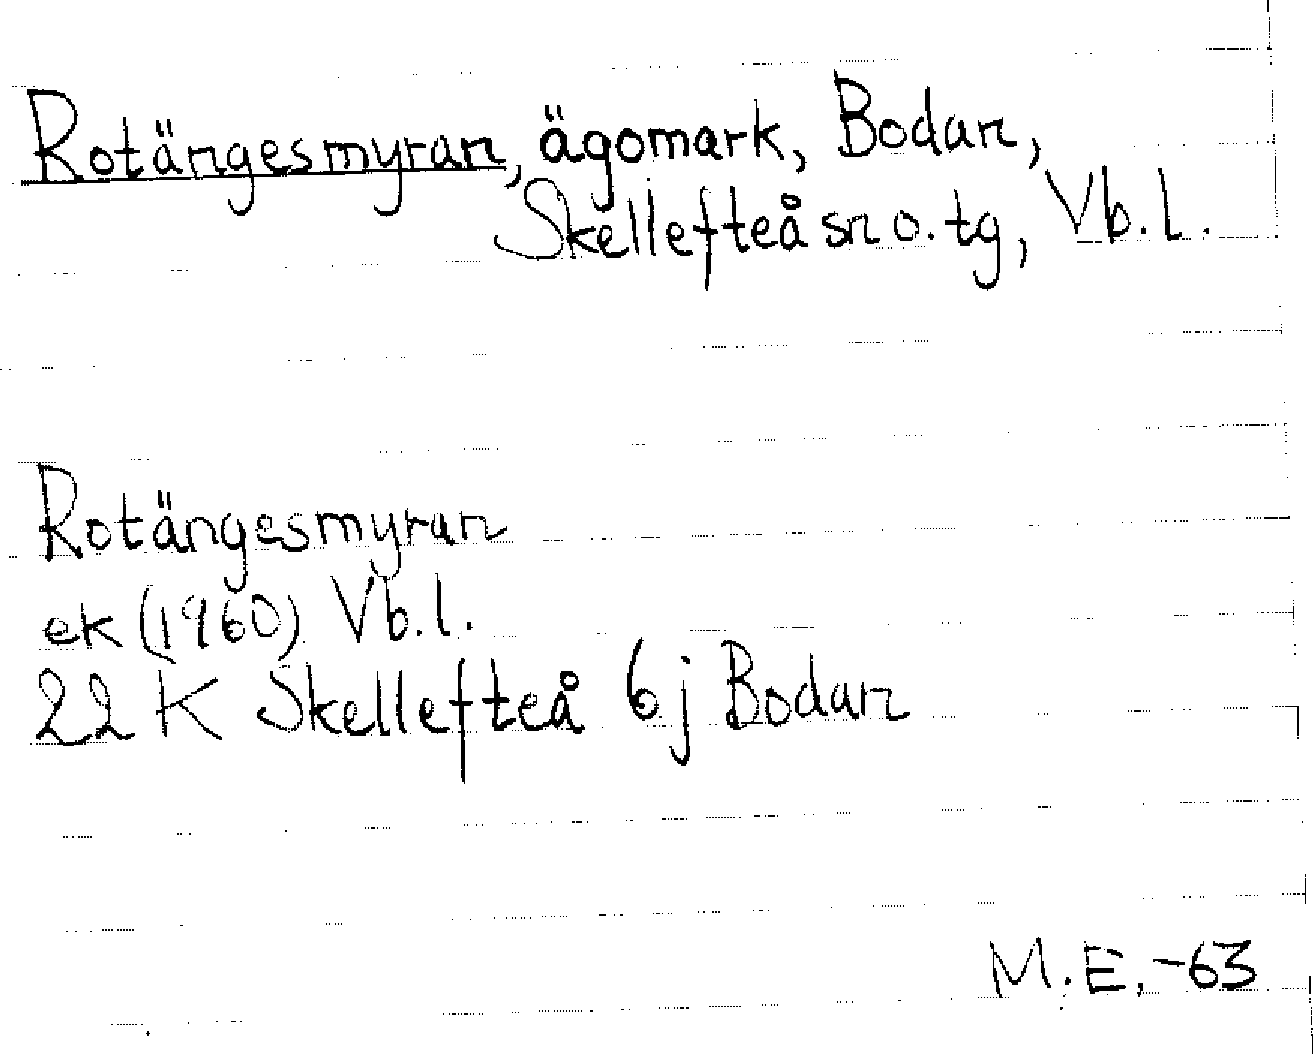 Rotängesmyran, ägomark, Bodan,
Skellefteå sn o. tg, Vb.l.
Rotängesmyran
ek (1960) Vb.l.
22 K Skellefteå 6 j Bodan
M.E. -63